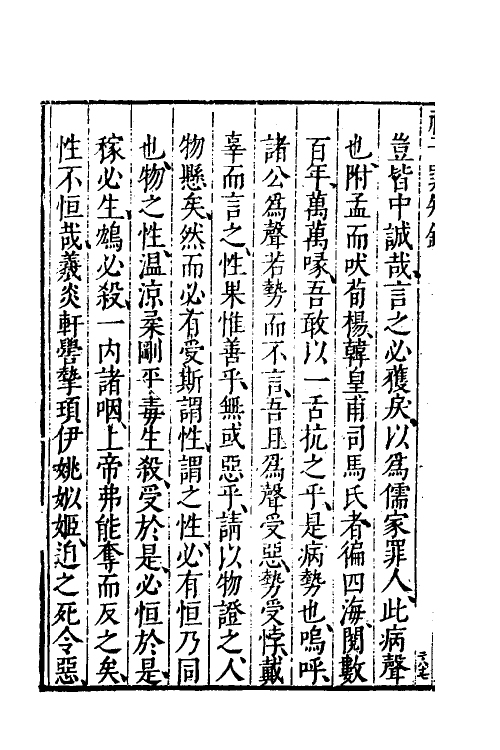 豈皆中誠哉言之必獲戾以為儒家罪人此病聲
也附孟而吠荀楊韓皇甫司馬氏者徧四海閱數
百年萬萬喙吾敢以一舌抗之乎是病勢也嗚呼
諸公為聲若勢而不言吾且為聲受惡勢受悖戴
辜而言之性果惟善乎無或惡乎請以物證之人
物懸矣然而必有受斯謂性謂之性必有恒乃同
也物之性溫涼柔剛平毒生殺受於是必恒於是
稼必生鴆必殺一內諸咽上帝弗能奪而反之矣
性不恒哉羲炎軒嚳摯頊伊姚姒姬迫之死令惡